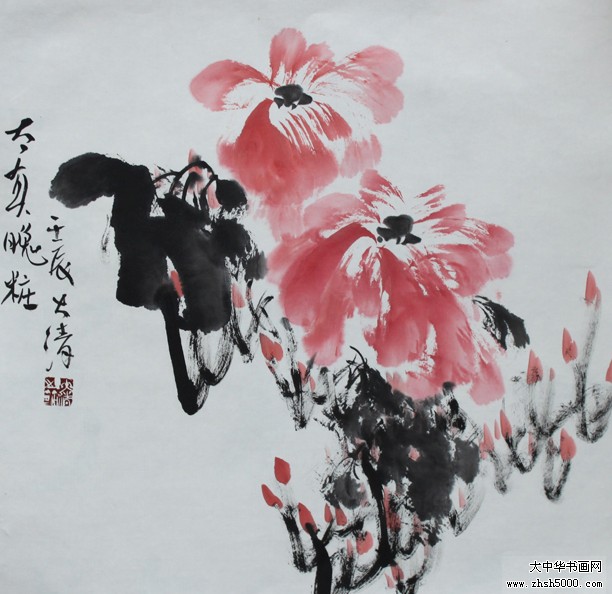 太真晚粧
壬辰大清
大中华书画网
www.zhsh5000.com